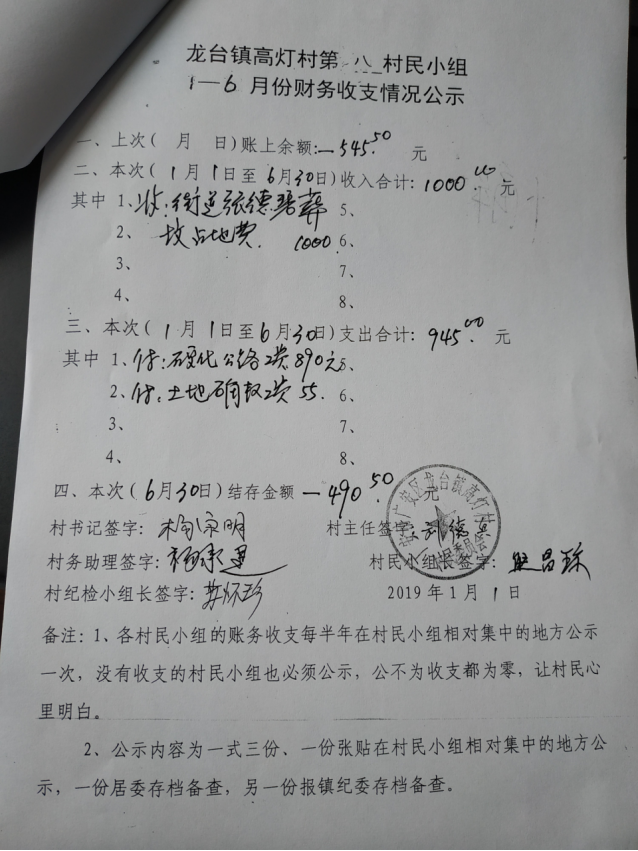 龙台镇高灯村第 八 村民小组
1—6 月份财务收支情况公示
一、上次( 月 日)账上余额:—545.50 元
二、本次( 1月1日至6月30日)收入合计:1000.00 元
其中 1、收:街道张德碧葬 5、
2、坟占地费. 1000 6、
3、 7、
4、 8、
三、本次( 1月1日至6月30日)支出合计: 945.00 元
其中 1、付:硬化公路款890元 5、
2、付:土地确权款55. 6、
3、 7、
4、 8、
四、本次( 6月30日)结存金额—490.50 元
村书记签字: 村主任签字:
村务助理签字: 村民小组长签字:
村纪检小组长签字: 2019年1月1日
备注:1、各村民小组的账务收支每半年在村民小组相对集中的地方公示
一次,没有收支的村民小组也必须公示,公不为收支都为零,让村民心
里明白。
2、公示内容为一式三份、一份张贴在村民小组相对集中的地方公
示,一份居委存档备查,另一份报镇纪委存档备查。